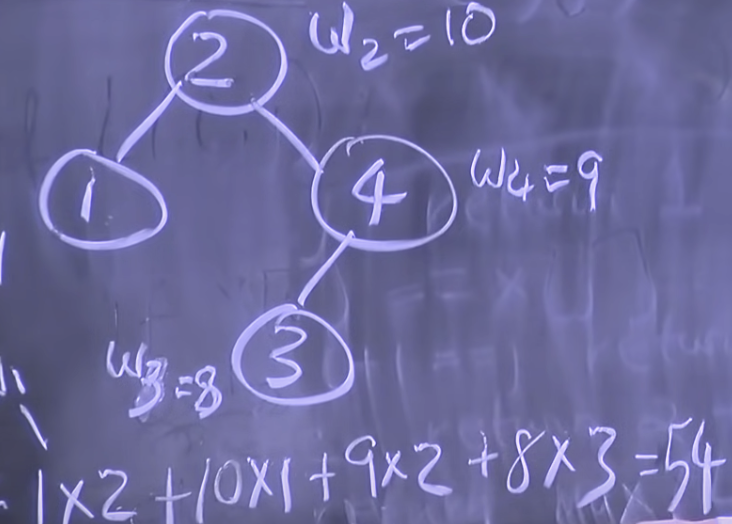 2 W₂=10
1 4 W4=9
W3=8 3
1×2+10×1+9×2+8×3=54